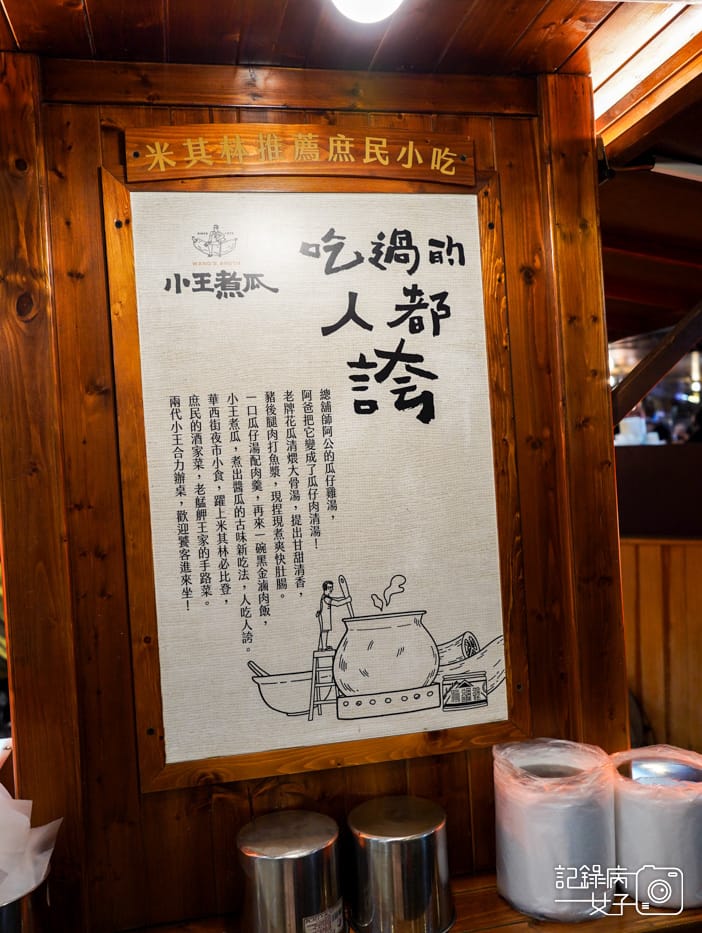 米其林推薦庶民小吃
小王煮瓜
吃過的
人都
誇
總舖師阿公的瓜仔雞湯，
阿爸把它變成了瓜仔肉清湯！
老牌花瓜清煨大骨湯，提出甘甜清香，
豬後腿肉打魚漿，現捏現煮爽快肚腸。
一口瓜仔湯配肉羹，再來一碗黑金滷肉飯，
小王煮瓜，煮出醬瓜的古味新吃法，人吃人誇。
華西街夜市小食，躍上米其林必比登，
庶民的酒家菜，老艋舺王家的手路菜。
兩代小王合力辦桌，歡迎饕客進來坐！
記錄病
女子